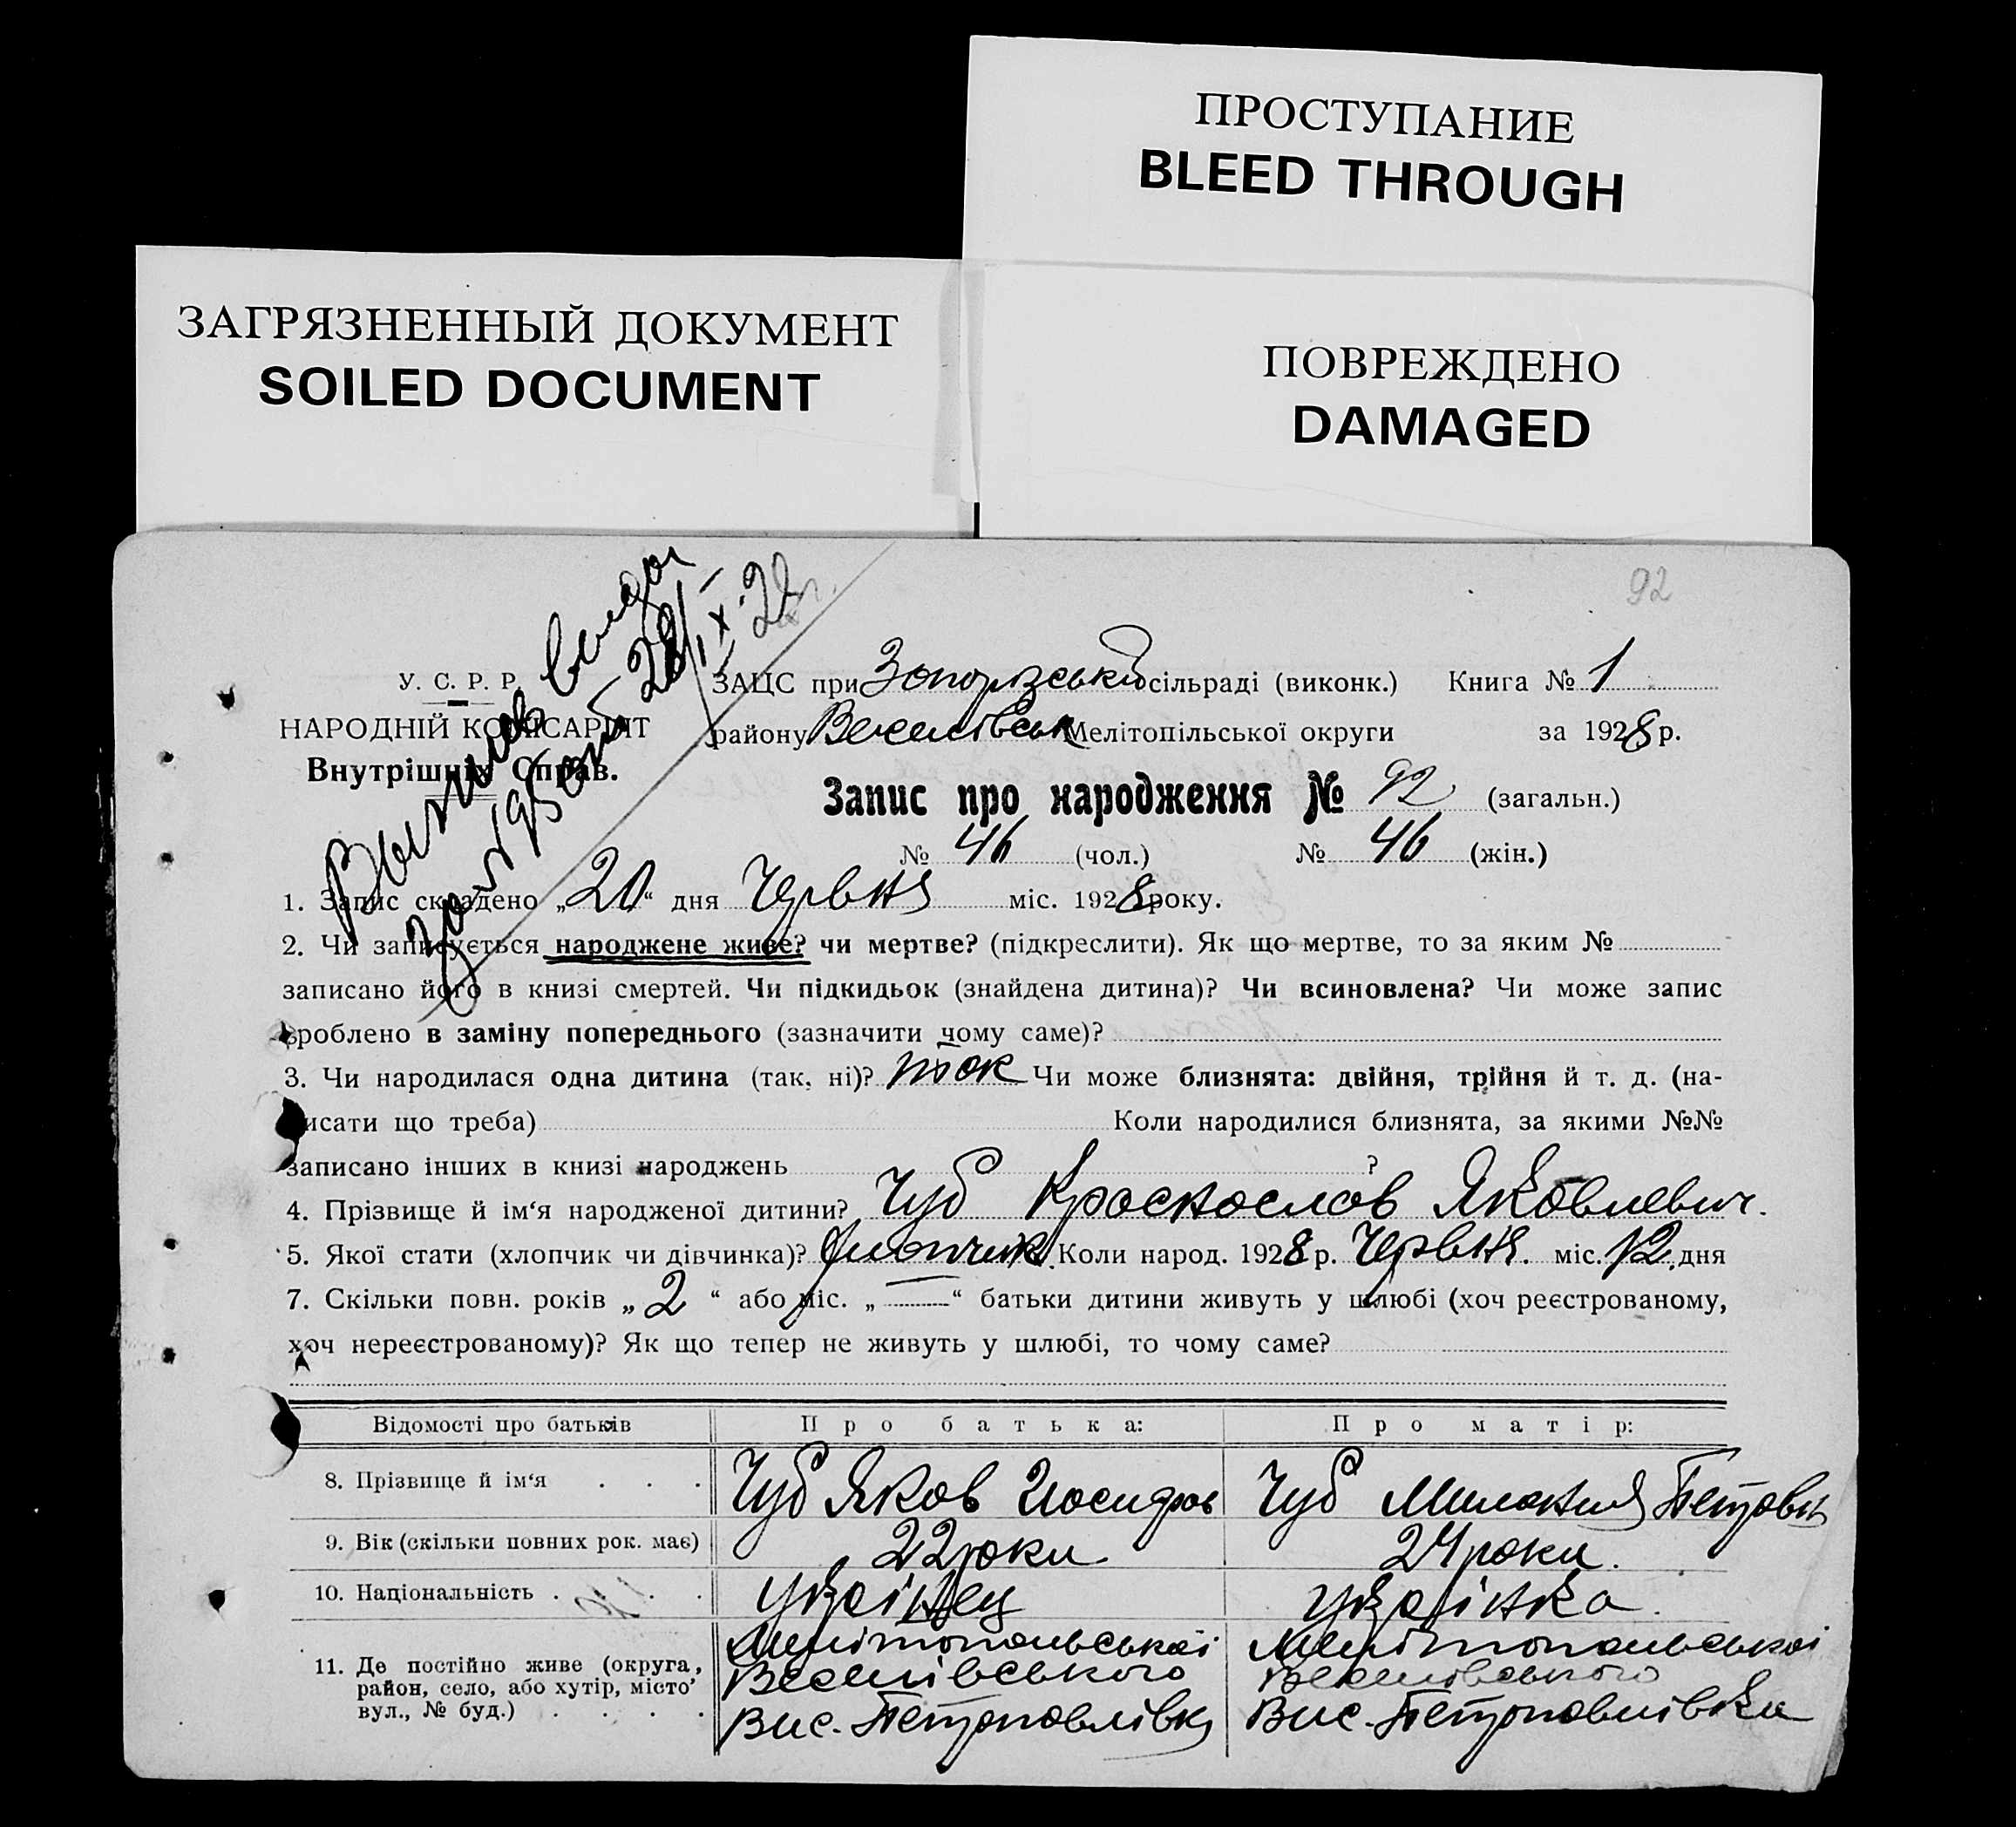 ПРОСТУПАНИЕ
BLEED THROUGH
ЗАГРЯЗНЕННЫЙ ДОКУМЕНТ
SOILED DOCUMENT
ПОВРЕЖДЕНО
DAMAGED
92
У. С. Р. Р.
НАРОДНІЙ КОМІСАРІЯТ
Внутрішніх Справ.
ЗАЦС при Запорізській сільраді (виконк.) Книга № 1
району Веселівськ Мелітопільської округи за 1928 р.
Запис про народження № 92 (загальн.)
№ 46 (чол.) № 46 (жін.)
1. Запис складено „20“ дня Червня міс. 1928 року.
2. Чи записується народжене живе? чи мертве? (підкреслити). Як що мертве, то за яким №
записано його в книзі смертей. Чи підкидьок (знайдена дитина)? Чи всиновлена? Чи може запис
зроблено в заміну попереднього (зазначити чому саме)?
3. Чи народилася одна дитина (так, ні)? так Чи може близнята: двійня, трійня й т. д. (на-
писати що треба) Коли народилися близнята, за якими №№
записано інших в книзі народжень ?
4. Прізвище й ім‘я народженої дитини? Чуб Краснослав Яковлевич.
5. Якої стати (хлопчик чи дівчинка)? хлопчик. Коли народ. 1928 р. Червня. міс. 12 дня
7. Скільки повн. років „2“ або міс. „—“ батьки дитини живуть у шлюбі (хоч реєстрованому,
хоч нереєстрованому)? Як що тепер не живуть у шлюбі, то чому саме?
Відомості про батьків Про батька: Про матір:
8. Прізвище й ім‘я . . . Чуб Яков Иосифов Чуб Милания Петровн
9. Вік (скільки повних рок. має) 22 роки 24 роки.
10. Національність . . . Українец Українка.
11. Де постійно живе (округа, район, село, або хутір, місто, вул., № буд.) . . . .
Мелітопольської Мелітопольської
Веселівського Веселівського
Вис. Петропавлівки Вис. Петропавлівки